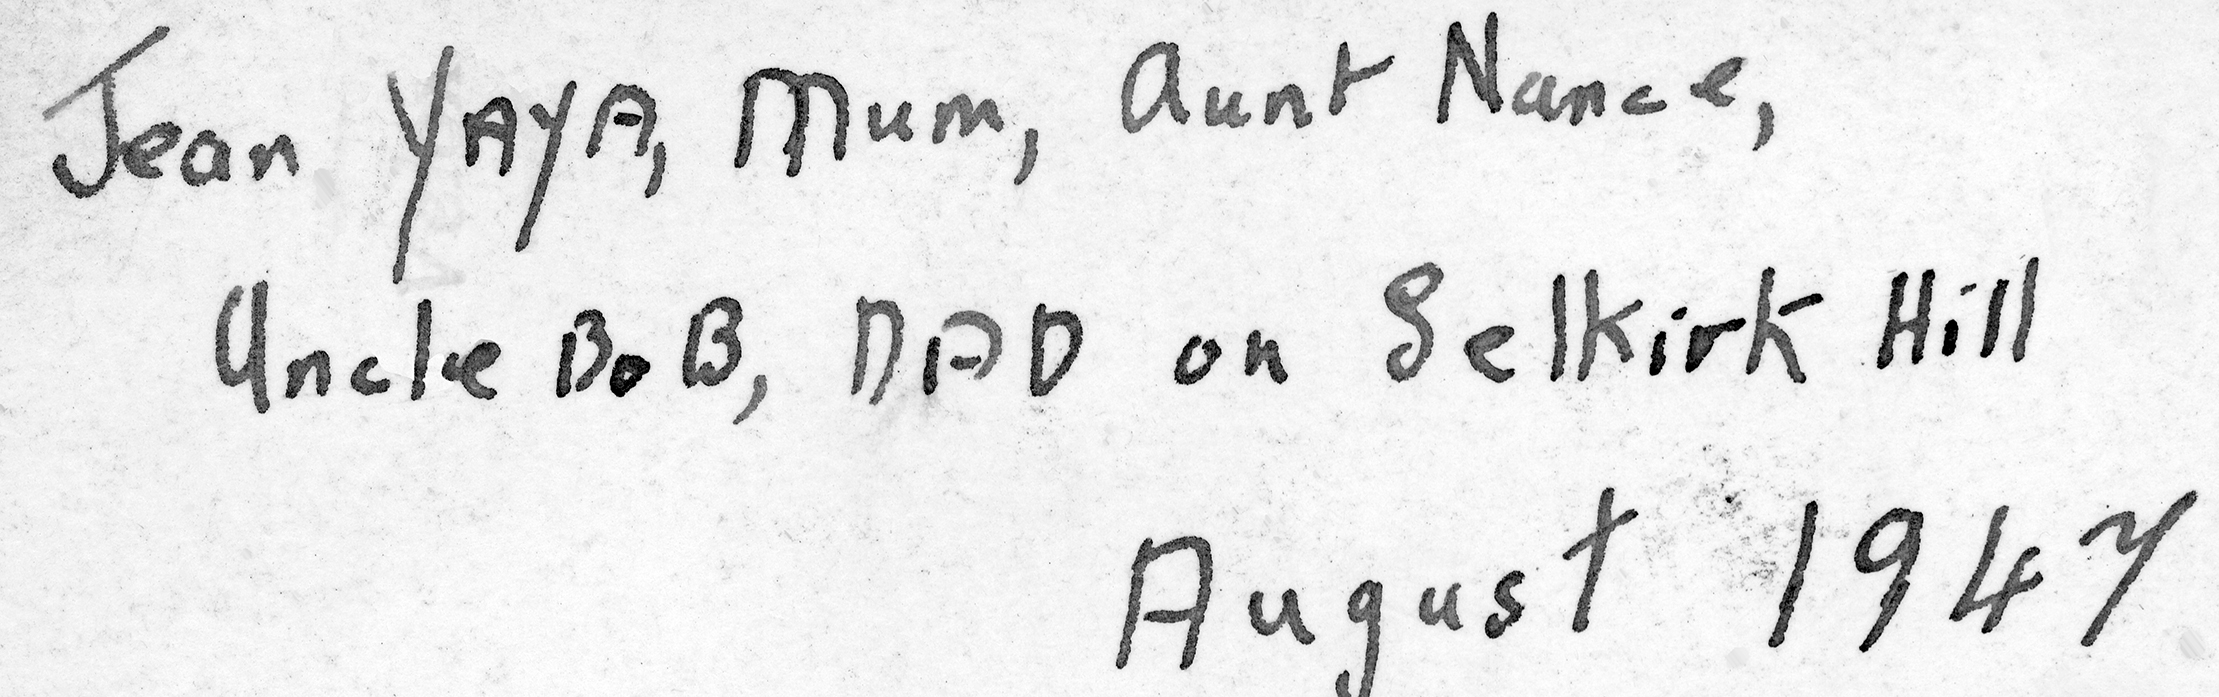 Jean YAYA, Mum, Aunt Nance,
Uncle BoB, DAD on Selkirk Hill
August 1947